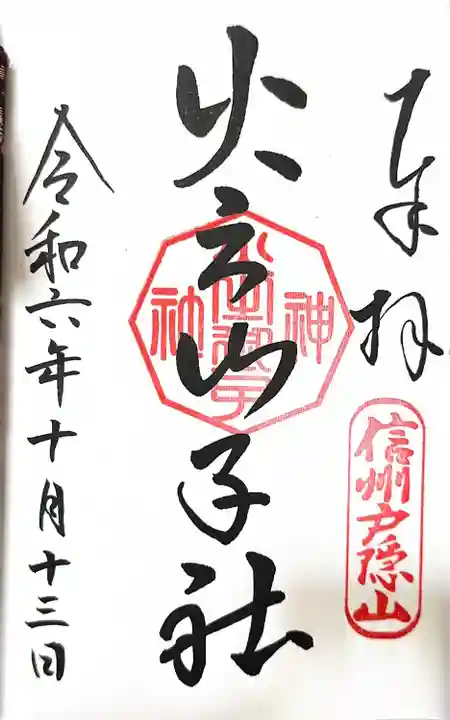 奉拝
信州戸隠山
火之御子社
令和六年十月十三日